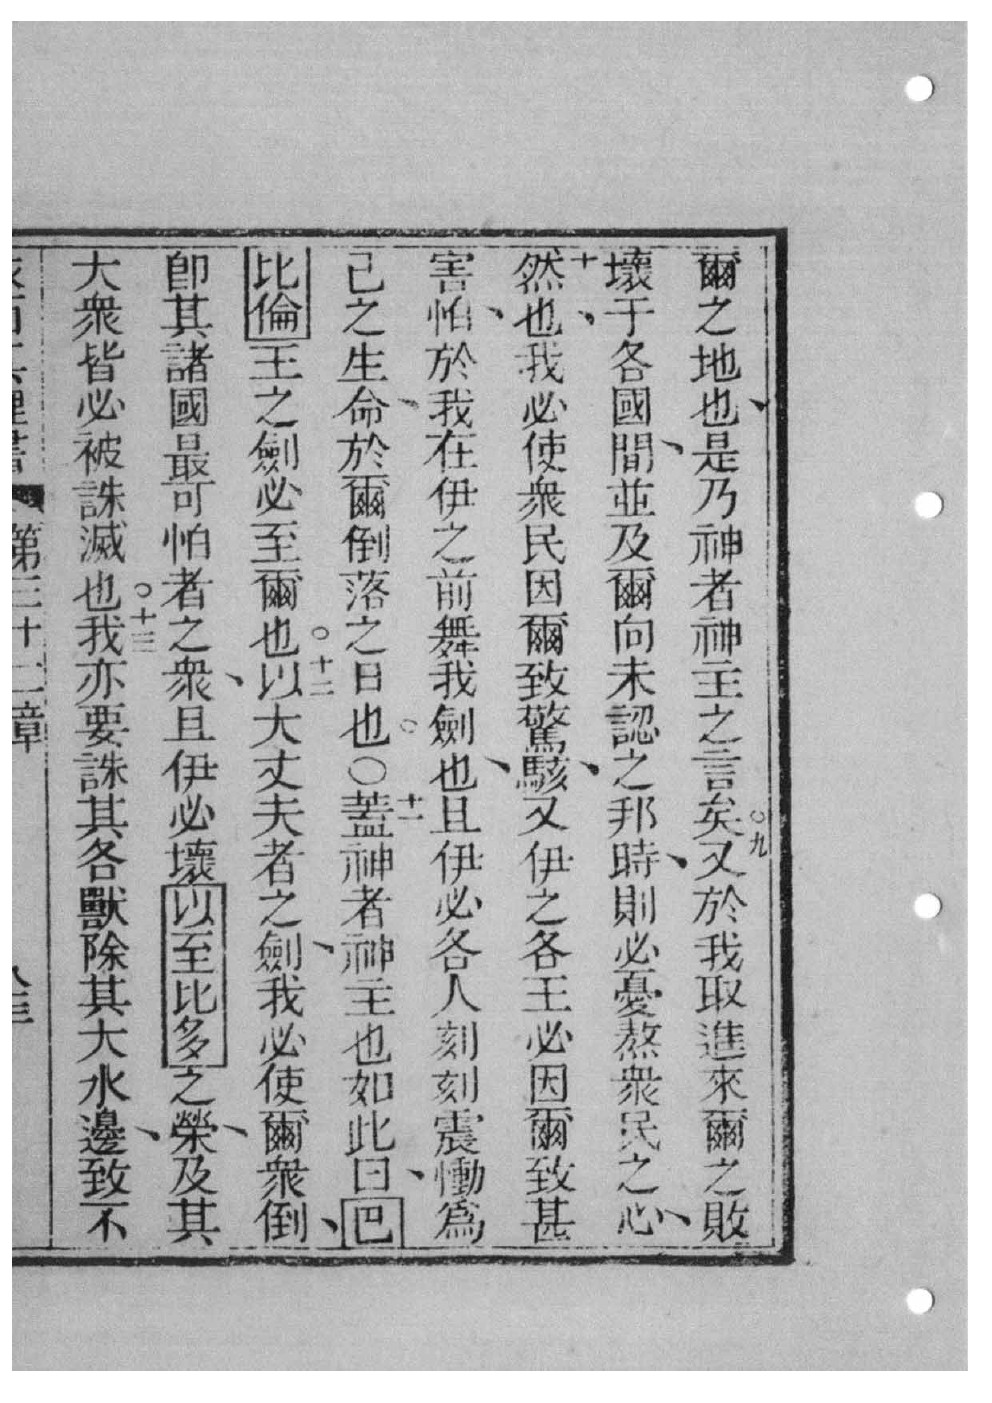 爾之地也、是乃神者神主之言矣。九又於我取進來爾之敗
壞于各國間、並及爾向未認之邦、時則必憂熬衆民之心、
十然也、我必使衆民因爾致驚駭、又伊之各王必因爾致甚
害怕、於我在伊之前舞我劍也、且伊必各人刻刻震慟、爲
己之生命、於爾倒落之日也。○十一蓋神者神主也如此曰、巴
比倫王之劍必至爾也。十二以大丈夫者之劍、我必使爾衆倒、
卽其諸國最可怕者之衆、且伊必壞以至比多之榮、及其
大衆皆必被誅滅也。十三我亦要誅其各獸除其大水邊、致不
第三十二章